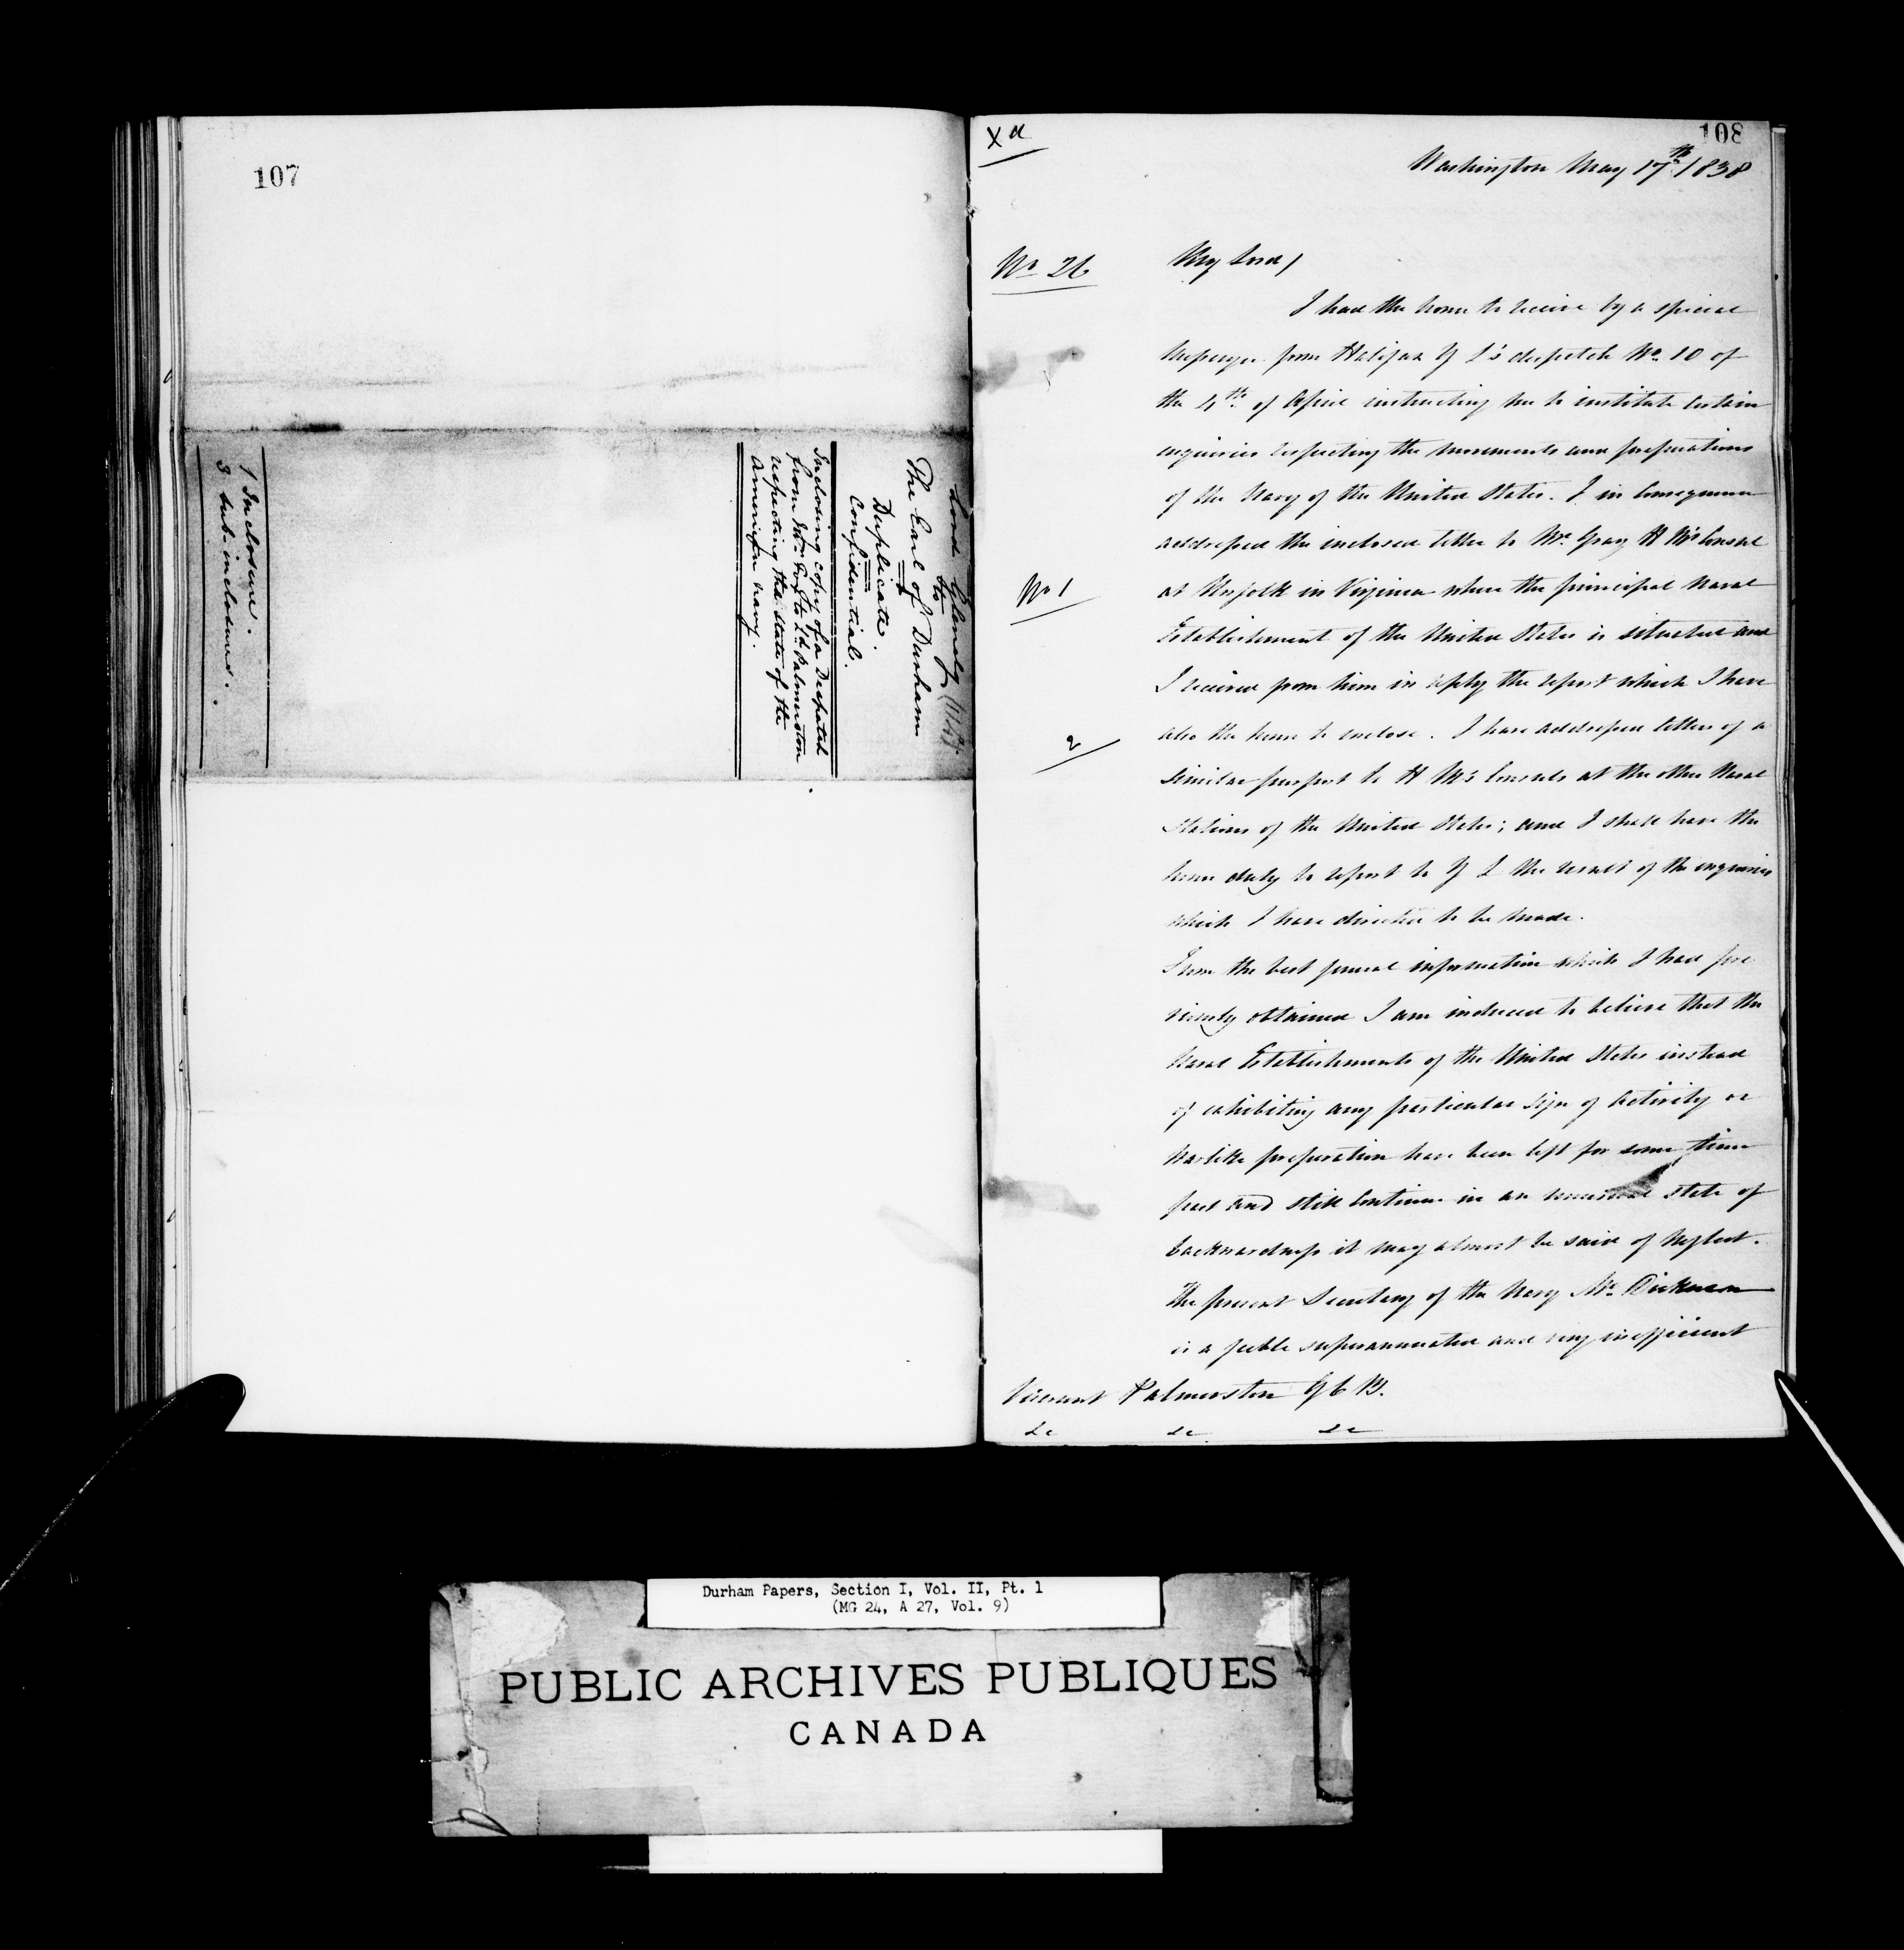 107
Lord Glenelg
to
The Earl of Durham
Duplicate.
Confidential.
Inclosing copy of a Despatch
from Mr. Fox to Ld. Palmerston
respecting the state of the
American navy.
1 Inclosure.
3 sub-inclosures.
Xd
108
Washington May 17th 1838
No 26
My Lord,
I had the honor to receive by a special
Messenger from Halifax Y L's despatch No. 10 of
the 4th. of April instructing me to institute certain
enquiries respecting the movements and preparations
of the Navy of the United States. I in consequence
addressed the inclosed letter to Mr Gray H M's Consul
No 1
at Norfolk in Virginia where the principal Naval
Establishment of the United States is situated and
I received from him in reply the report which I have
2
also the honor to enclose. I have addressed letters of a
similar purport to H M's Consuls at the other Naval
Stations of the United States; and I shall have the
honor duly to report to Y L the result of the enquiries
which I have directed to be made.
From the best general information which I had pre
viously obtained I am induced to believe that the
Naval Establishments of the United States instead
of exhibiting any particular sign of activity or
warlike preparation have been left for some time
past and still continue in an unusual state of
backwardness it may almost be said of neglect.
The present Secretary of the Navy Mr. Dickerson
is a feeble superannuated and very inefficient
Viscount Palmerston G C B.
&c &c &c
Durham Papers, Section I, Vol. II, Pt. 1
(MG 24, A 27, Vol. 9)
PUBLIC ARCHIVES PUBLIQUES
CANADA